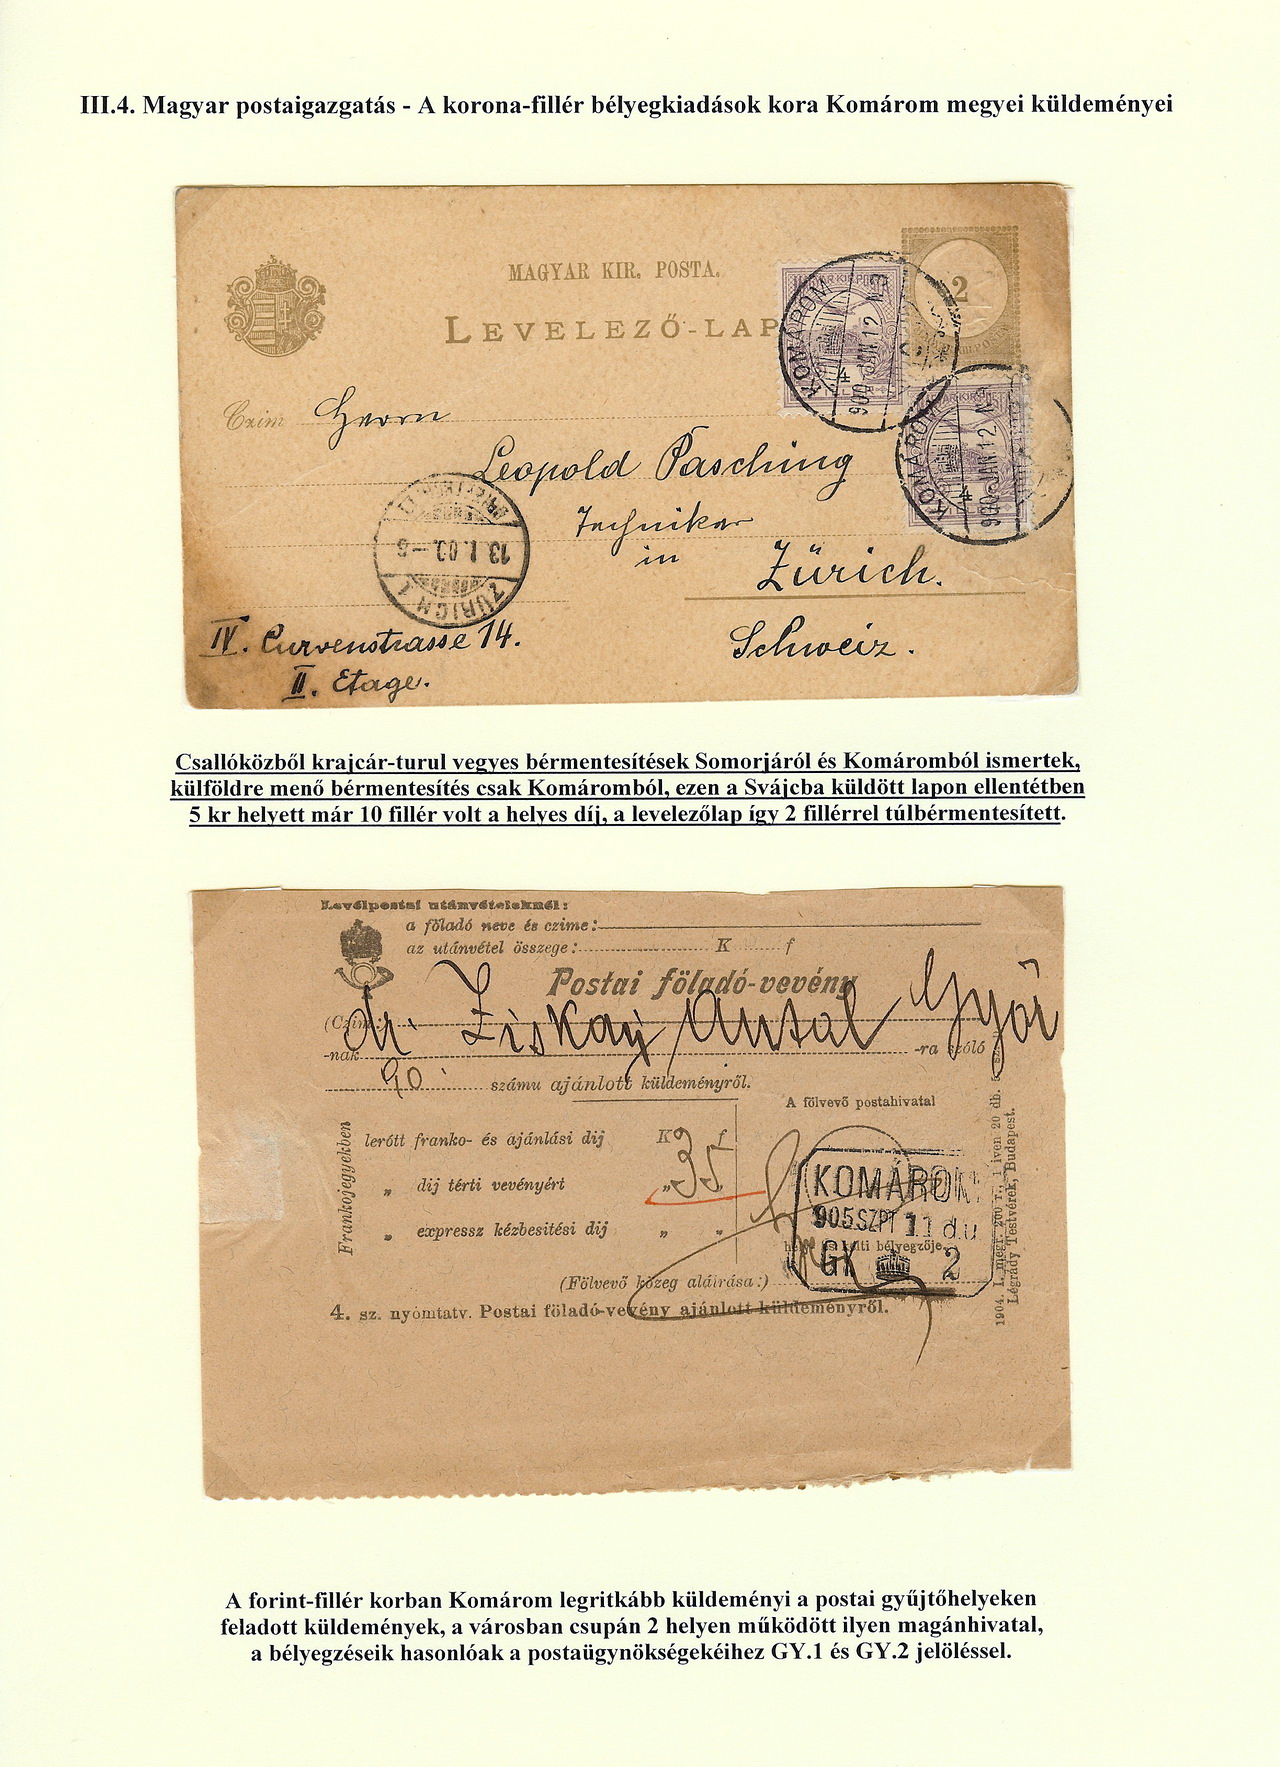 III.4. Magyar postaigazgatás - A korona-fillér bélyegkiadások kora Komárom megyei küldeményei
MAGYAR KIR. POSTA.
LEVELEZŐ-LAP
2
KOMÁROM
900 JAN 12 N3
4
KOMÁROM
900 JAN 12 N3
4
Czim
Herrn
Leopold Pasching
Techniker
in
Zürich.
Schweiz.
13. I. 00. - 6
ZÜRICH 1
IV. Curvenstrasse 14.
II. Etage.
Csallóközből krajcár-turul vegyes bérmentesítések Somorjáról és Komáromból ismertek,
külföldre menő bérmentesítés csak Komáromból, ezen a Svájcba küldött lapon ellentétben
5 kr helyett már 10 fillér volt a helyes díj, a levelezőlap így 2 fillérrel túlbérmentesített.
Levélpostai utánvételeknél:
a föladó neve és czime:
az utánvétel összege: K f
Postai föladó-vevény
(Czim:) Dr. Ziskay Antal Győr
-nak -ra szóló
90 számu ajánlott küldeményről.
A fölvevő postahivatal
Frankojegyekben
lerótt franko- és ajánlási dij K f
„ dij térti vevényért „ 35
„ expressz kézbesitési dij „ „
KOMÁROM
905 SZPT 11 d.u
GY 2
helyi és kelti bélyegzője.
(Fölvevő közeg aláirása:)
4. sz. nyomtatv. Postai föladó-vevény ajánlott küldeményről.
Légrády Testvérek, Budapest.
A forint-fillér korban Komárom legritkább küldeményi a postai gyűjtőhelyeken
feladott küldemények, a városban csupán 2 helyen működött ilyen magánhivatal,
a bélyegzéseik hasonlóak a postaügynökségekéihez GY.1 és GY.2 jelöléssel.